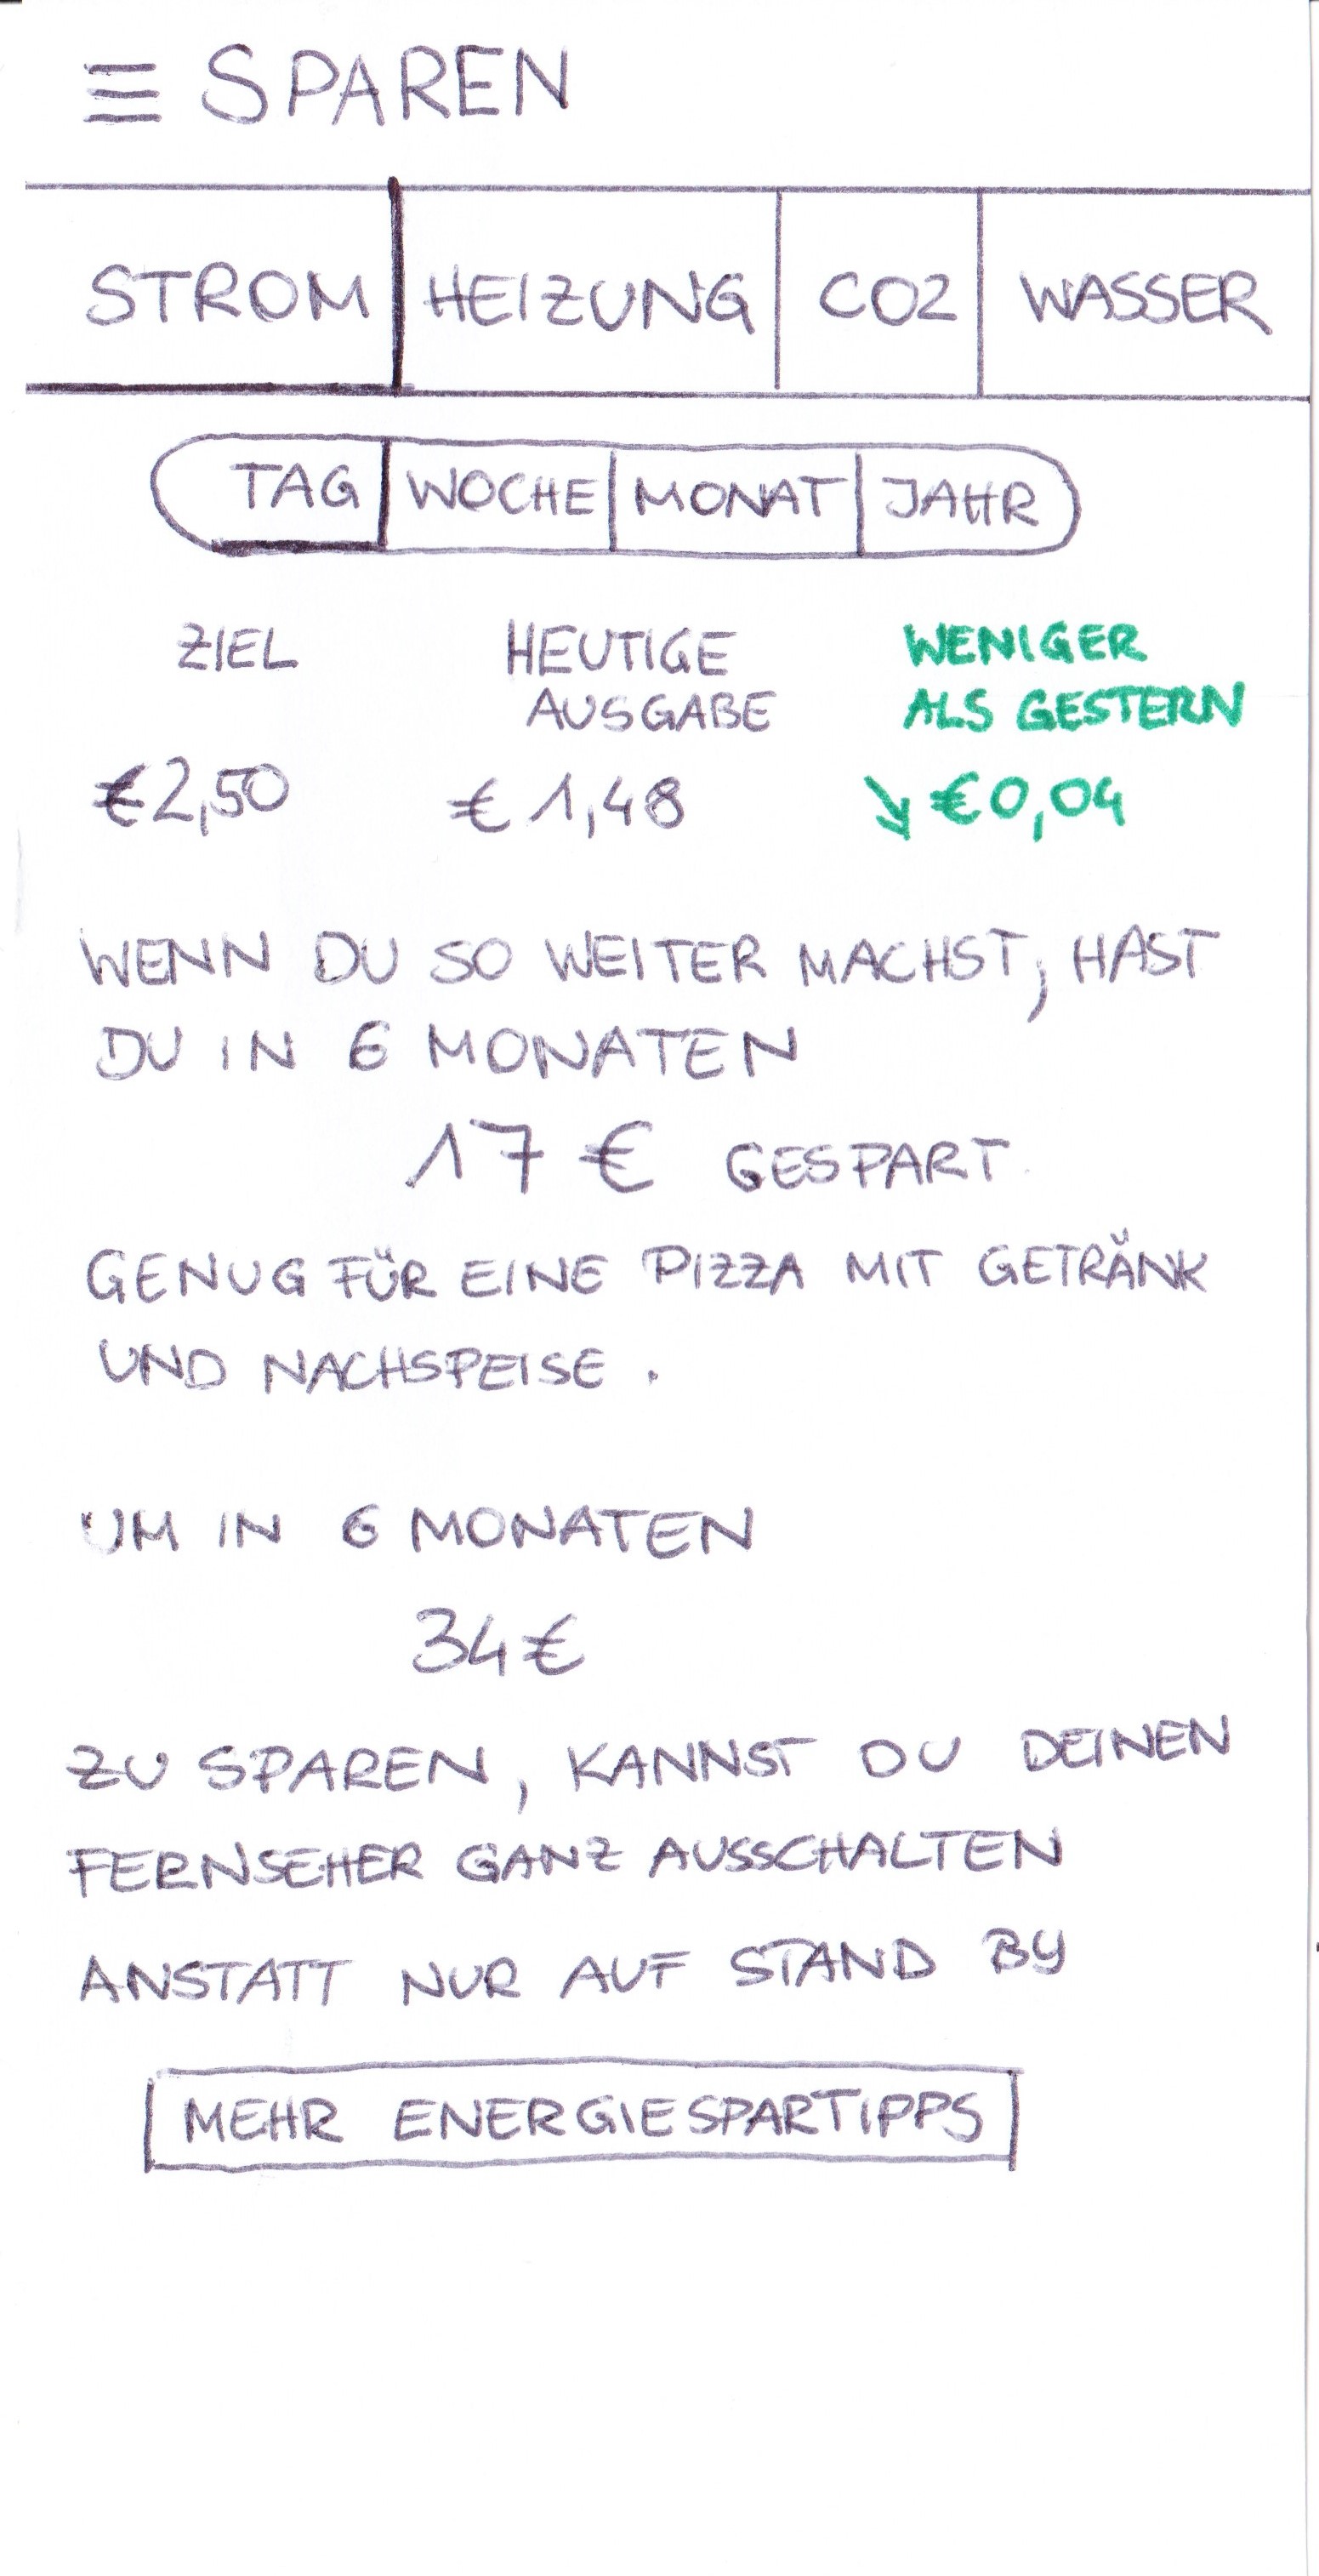 SPAREN
STROM HEIZUNG CO2 WASSER
TAG WOCHE MONAT JAHR
ZIEL HEUTIGE WENIGER
AUSGABE ALS GESTERN
€2,50 € 1,48 ↘ €0,04
WENN DU SO WEITER MACHST, HAST
DU IN 6 MONATEN
17 € GESPART
GENUG FÜR EINE PIZZA MIT GETRÄNK
UND NACHSPEISE.
UM IN 6 MONATEN
34€
ZU SPAREN, KANNST DU DEINEN
FERNSEHER GANZ AUSSCHALTEN
ANSTATT NUR AUF STAND BY
MEHR ENERGIESPARTIPPS